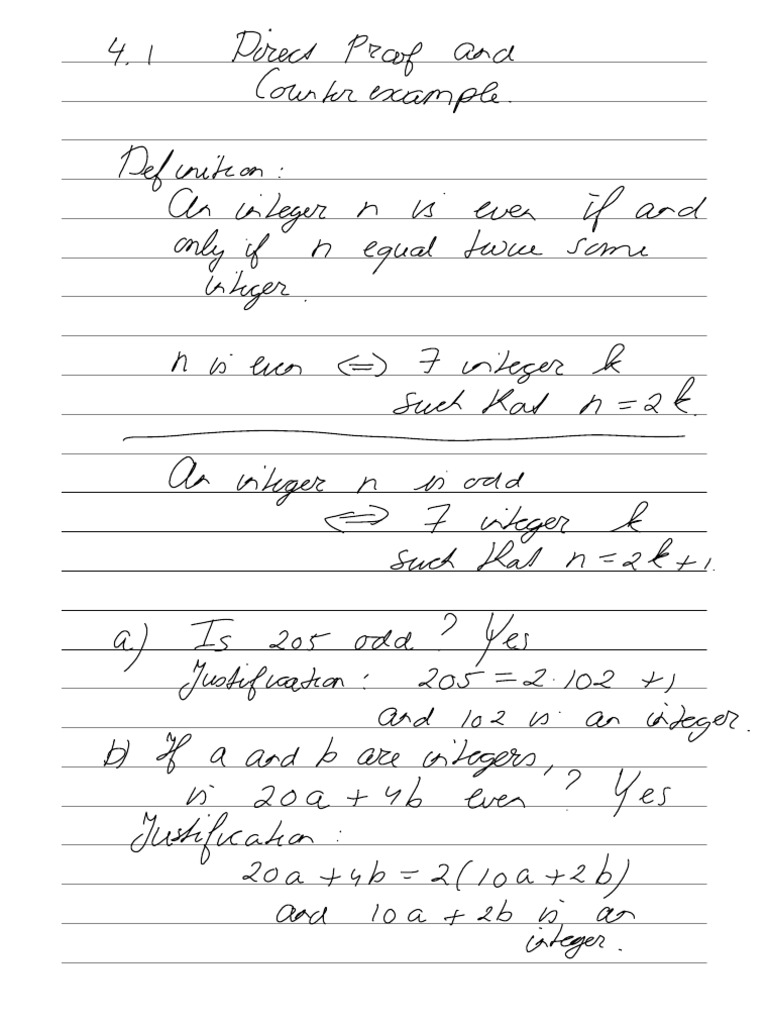 4.1 Direct Proof and
Counter example.
Definition:
An integer n is even if and
only if n equal twice some
integer.
n is even ⇔ ∃ integer k
such that n = 2k.
An integer n is odd
⇔ ∃ integer k
such that n = 2k+1.
a) Is 205 odd? Yes
Justification: 205 = 2·102 +1
and 102 is an integer.
b) If a and b are integers,
is 20a + 4b even? Yes
Justification:
20a + 4b = 2(10a + 2b)
and 10a + 2b is an
integer.